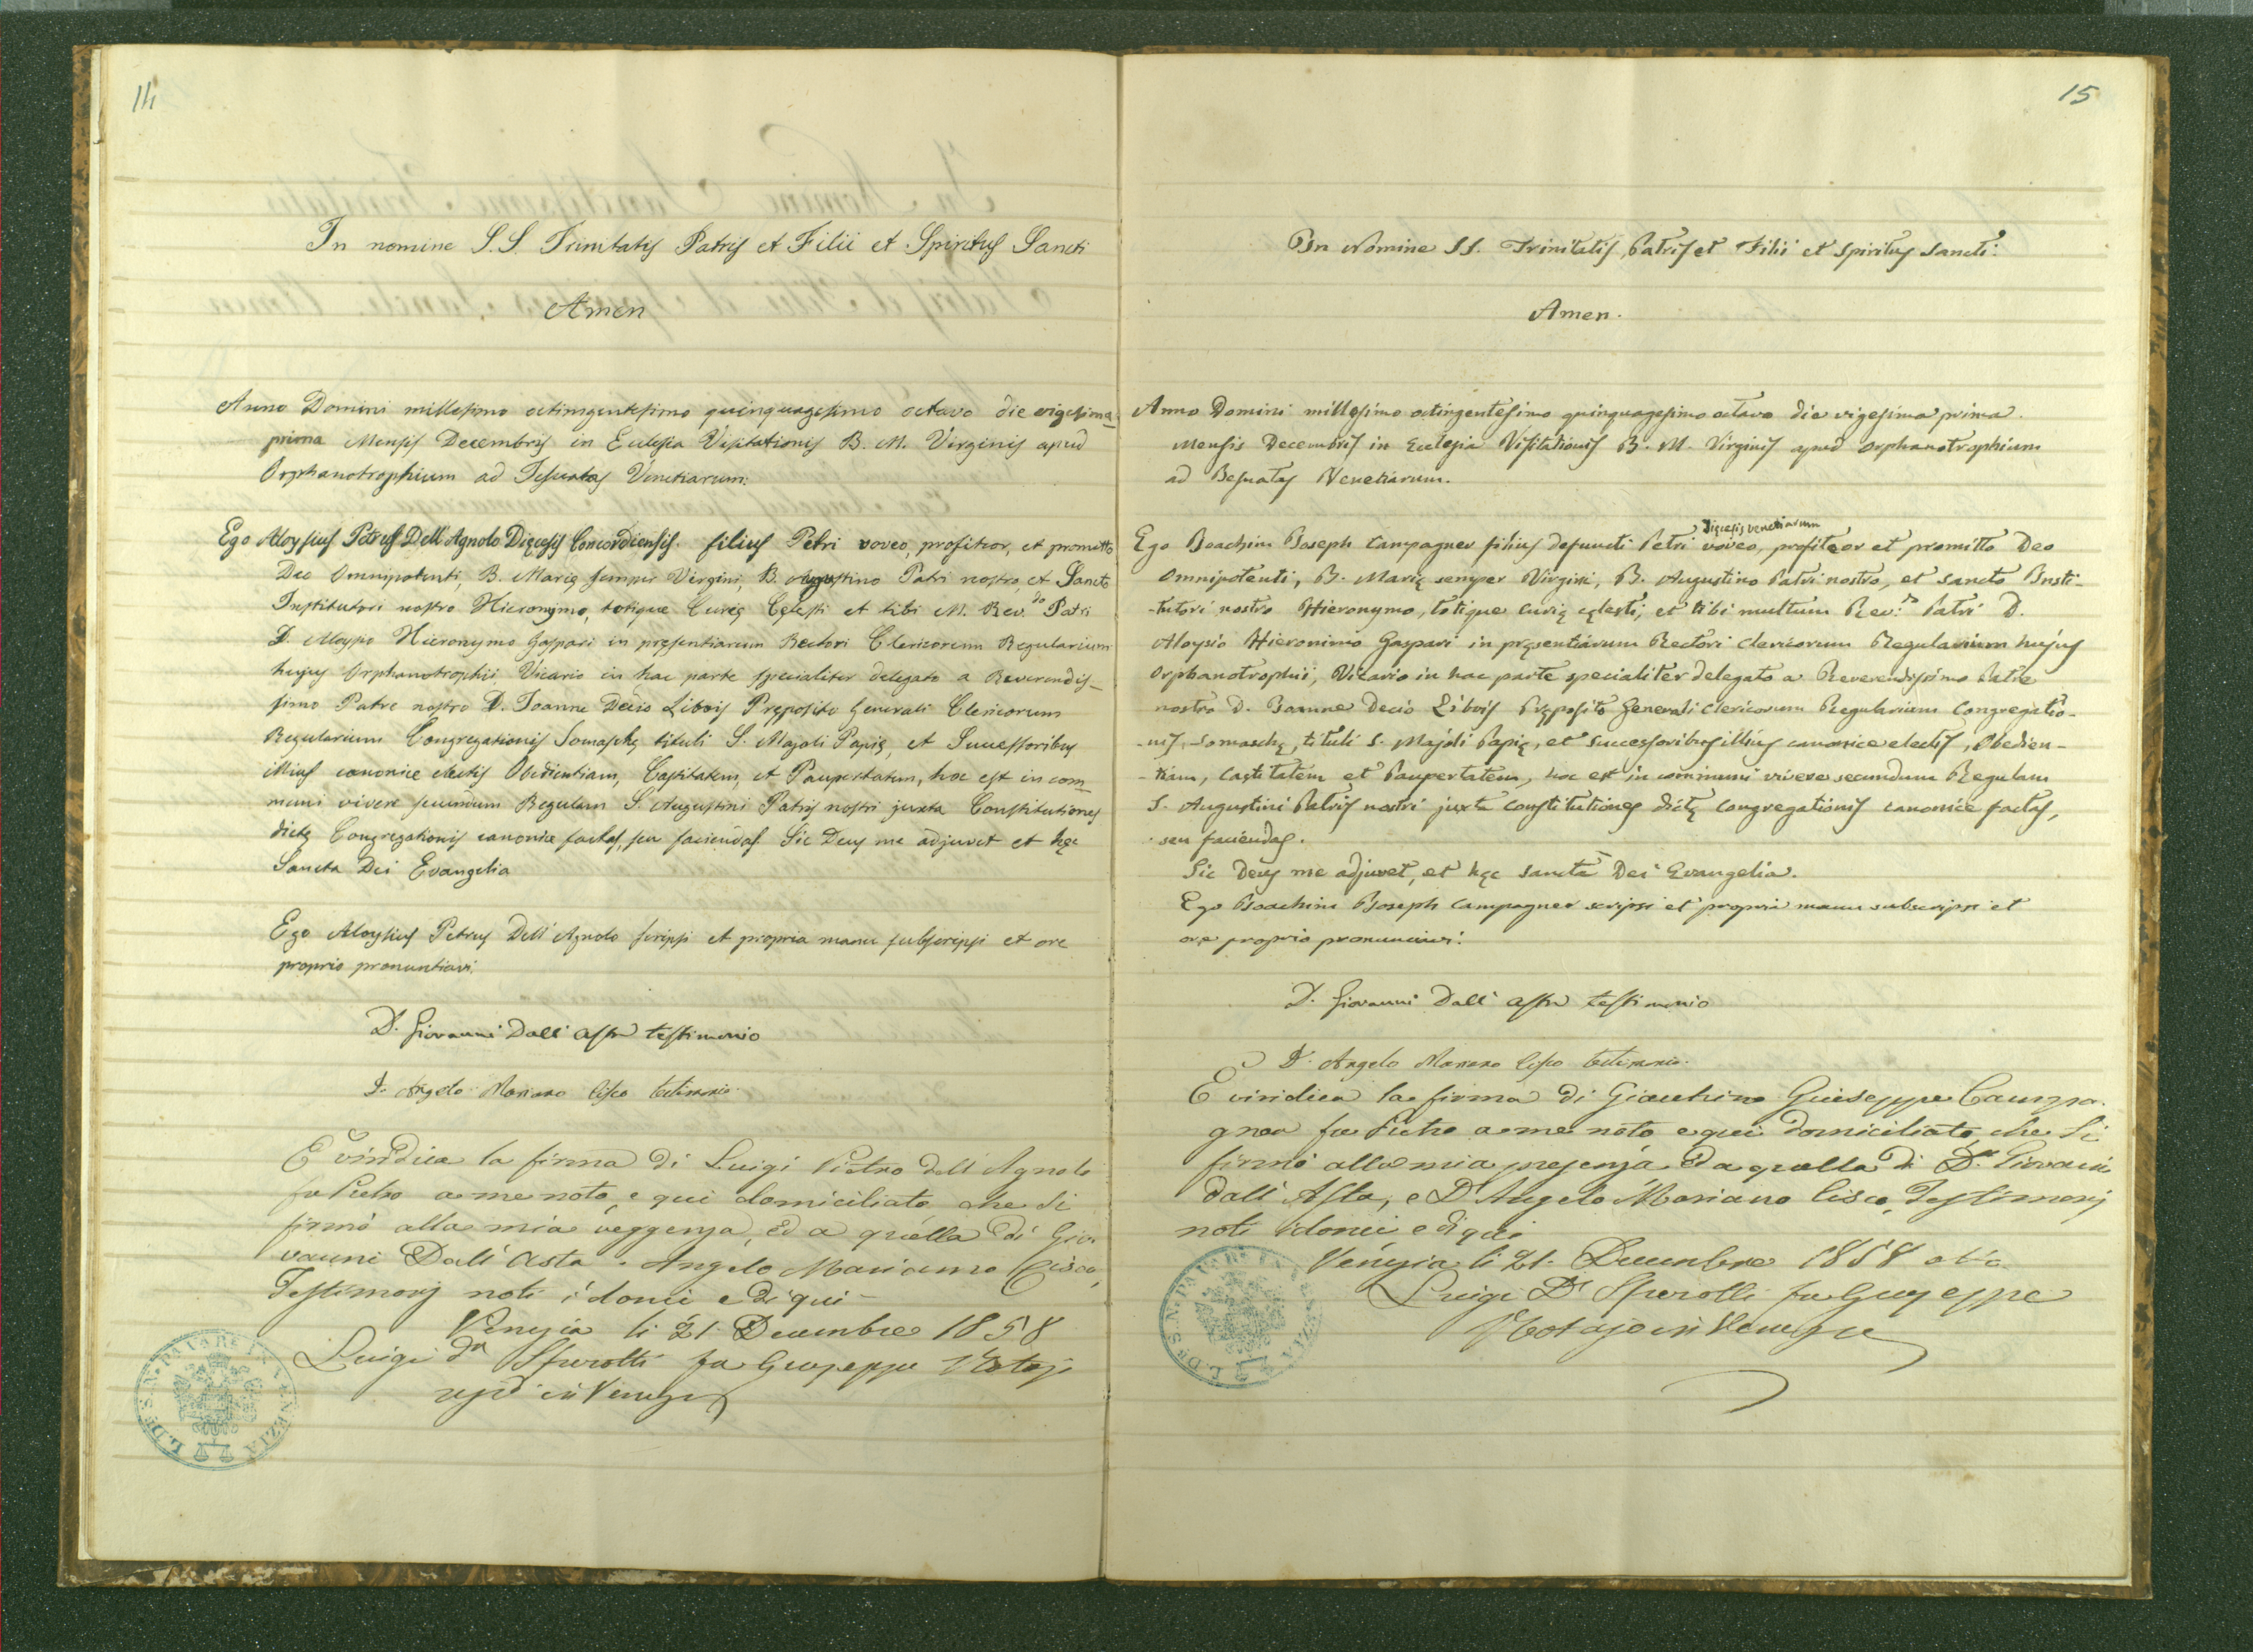 14
In nomine S.S. Trinitatis Patris et Filii et Spiritus Sancti
Amen
Anno Domini millesimo octingentesimo quinquagesimo octavo die vigesima
prima Mensis Decembris in Ecclesia Visitationis B. M. Virginis apud
Orphanotrophium ad Jesuatas Venetiarum:
Ego Aloysius Petrus Dell'Agnolo Dięcesis Concordiensis. filius Petri voveo, profiteor, et promitto
Deo Omnipotenti, B. Marię semper Virgini, B. Augustino Patri nostro, et Sancto
Institutori nostro Hieronymo, totique Curię Cęlesti et tibi M. Rev.do Patri
D. Aloysio Hieronymo Gaspari in pręsentiarum Rectori Clericorum Regularium
hujus Orphanotrophii, Vicario in hac parte specialiter delegato a Reverendis-
simo Patre nostro D. Joanne Decio Libois Pręposito Generali Clericorum
Regularium Congregationis Somaschę tituli S. Majoli Papię, et Successoribus
illius canonice electis Obedientiam, Castitatem, et Paupertatem, hoc est in com-
muni vivere secundum Regulam S. Augustini Patris nostri juxta Constitutiones
dictę Congregationis canonice factas, seu faciendas. Sic Deus me adjuvet et hęc
Sancta Dei Evangelia
Ego Aloysius Petrus Dell'Agnolo scripsi et propria manu subscripsi et ore
proprio pronuntiavi.
D. Giovanni Dall'Asta testimonio
D. Angelo Mariano Cisco testimonio.
È viridica la firma di Luigi Pietro dell'Agnolo
fu Pietro a me noto, e qui domiciliato che si
firmò alla mia veggenza, ed a quella di Gio
vanni Dall'Asta e Angelo Mariano Cisco,
Testimonj noti idonei e di qui -
Venezia li 21. Decembre 1858
Luigi Dr fu Giuseppe Notajo
resid in Venezia
15
In Nomine SS. Trinitatis, Patris et Filii et Spiritus Sancti.
Amen.
Anno Domini millesimo octingentesimo quinquagesimo octavo die vigesima prima
mensis Decembris in Ecclesia Visitationis B. M. Virginis apud Orphanotrophium
ad Jesuatas Venetiarum.
Dięcesis Venetiarum
Ego Joachim Joseph Campagner filius defuncti Petri voveo, profiteor et promitto Deo
Omnipotenti, B. Marię semper Virgini, B. Augustino Patri nostro, et Sancto Insti-
-tutori nostro Hieronymo, totique curię cęlesti, et tibi multum Rev.do Patri D.
Aloysio Hieronimo Gaspari in pręsentiarum Rectori Clericorum Regularium hujus
Orphanotrophii, Vicario in hac parte specialiter delegato a Reverendissimo Patre
nostro D. Joanne Decio Libois Pręposito Generali Clericorum Regularium Congregatio-
-nis, Somaschę, tituli S. Majoli Papię, et successoribus illius canonice electis, Obedien-
-tiam, Castitatem et Paupertatem, hoc est in communi vivere secundum Regulam
S. Augustini Patris nostri juxta Constitutiones dictę Congregationis canonice factas,
seu faciendas.
Sic Deus me adjuvet, et hęc Sancta Dei Evangelia.
Ego Joachim Joseph Campagner scripsi et propria manu subscripsi et
ore proprio pronunciavi.
D. Giovanni Dall'Asta testimonio
D. Angelo Mariano Cisco testimonio.
È viridica la firma di Giacchino Giuseppe Campa.
gner fu Pietro a me noto e qui domiciliato che si
firmò alla mia presenza ed a quella di Dn Giovanni
dall'Asta, e Dn Angelo Mariano Cisco, Testimonj
noti idonei e di qui
Venezia li 21. Decembre 1858
Luigi Dr fu Giuseppe
Notajo in Venezia